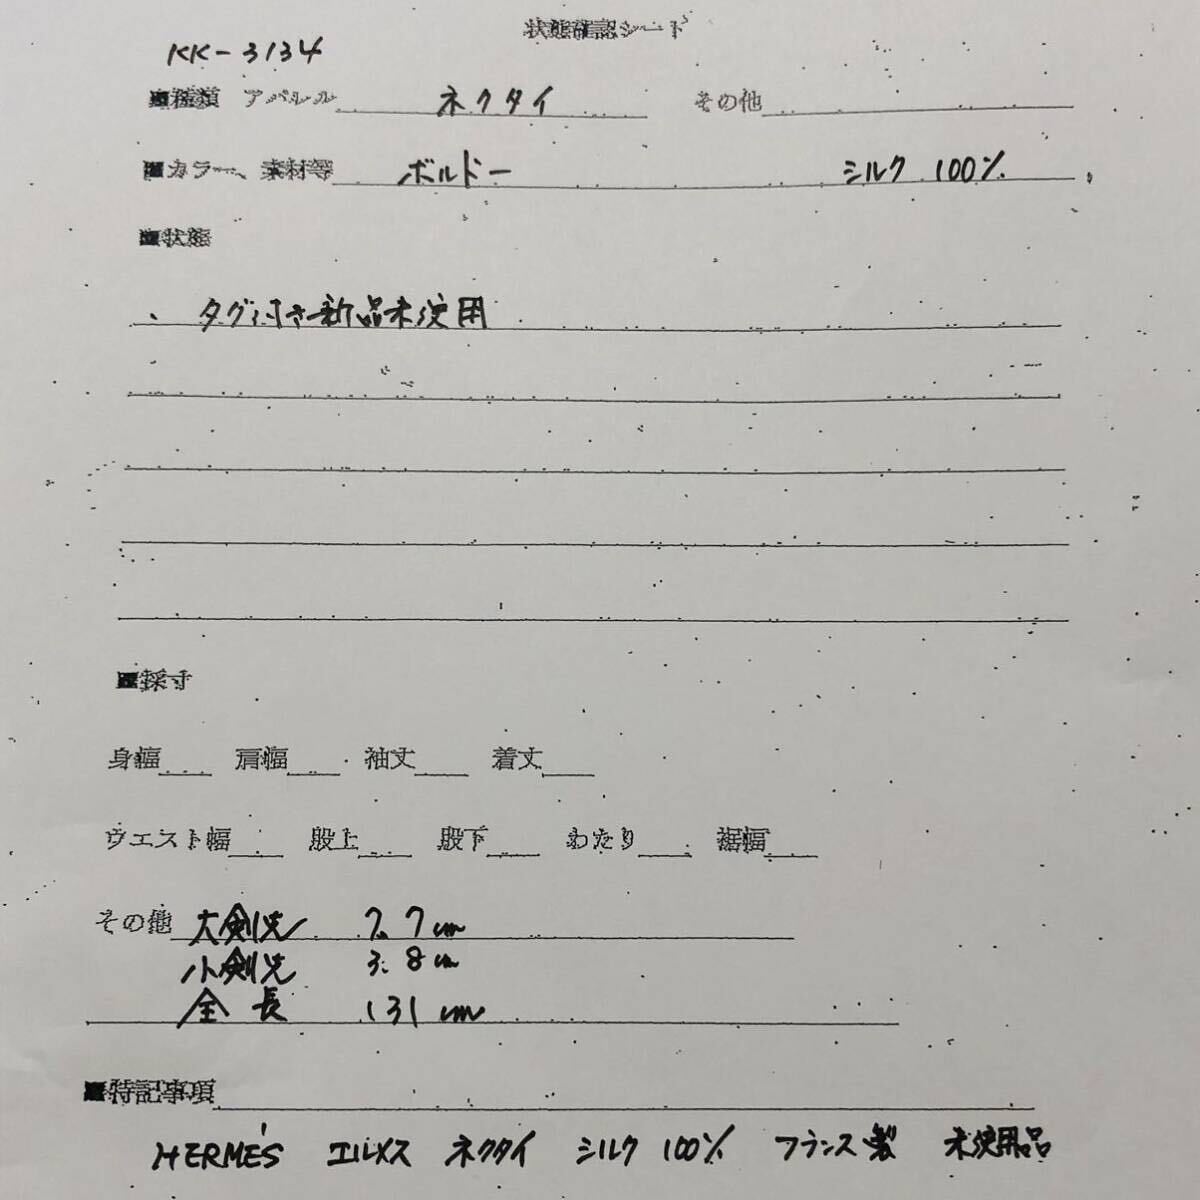 状態確認シート
KK-3134
■種類 アパレル ネクタイ その他
■カラー、素材等 ボルドー シルク 100%
■状態
・タグ付き新品未使用
■採寸
身幅 肩幅 袖丈 着丈
ウエスト幅 股上 股下 わたり 裾幅
その他 大剣先 7.7cm
小剣先 3.8cm
全長 131cm
■特記事項
HERMÉS エルメス ネクタイ シルク 100% フランス製 未使用品